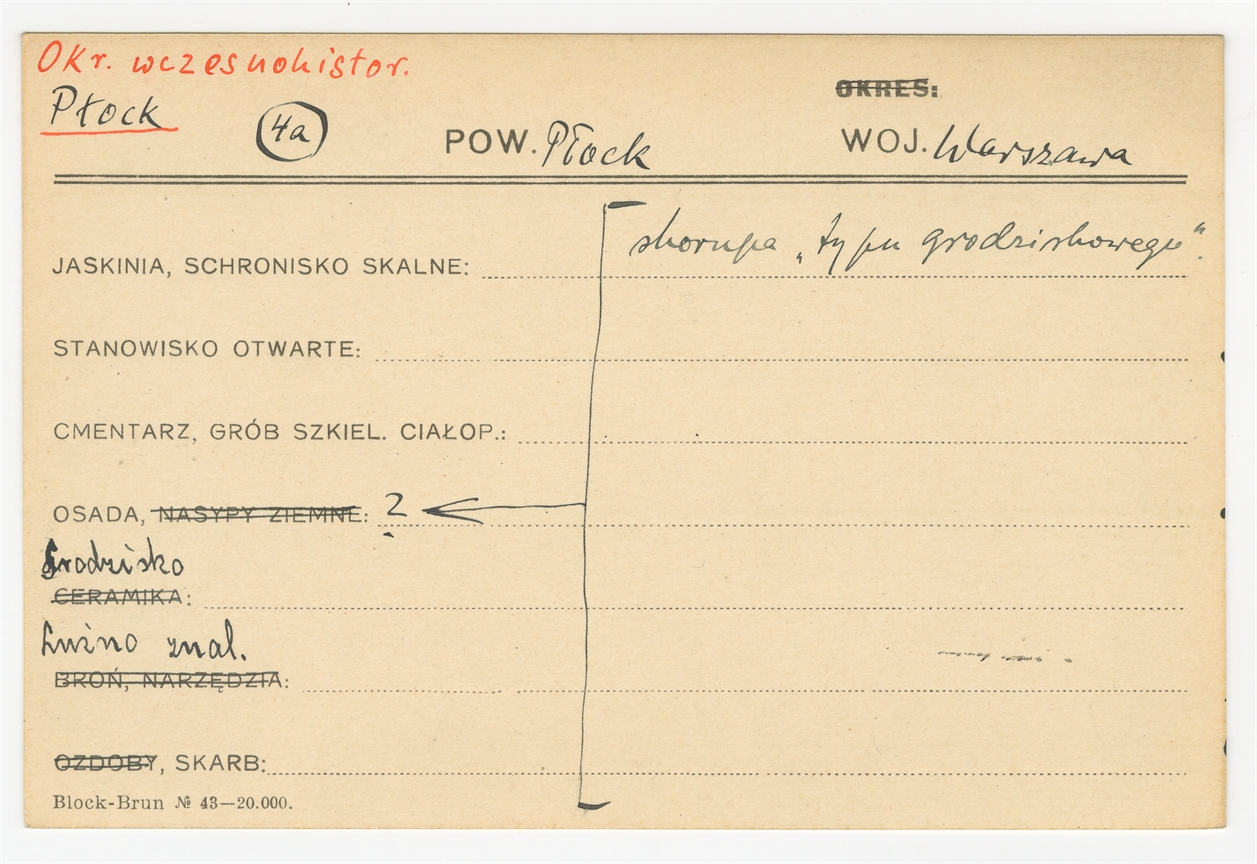 Okr. wczesnohistor.
Płock
4a
OKRES:
POW. Płock
WOJ. Warszawa
skorupa „typu grodziskowego".
JASKINIA, SCHRONISKO SKALNE:
STANOWISKO OTWARTE:
CMENTARZ, GRÓB SZKIEL. CIAŁOP.:
OSADA, NASYPY ZIEMNE: ?
Grodzisko
CERAMIKA:
Luźno znal.
BROŃ, NARZĘDZIA:
OZDOBY, SKARB:
Block-Brun № 43—20.000.